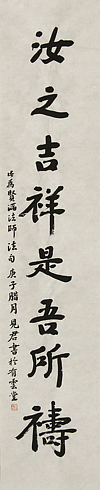 汝之吉祥是吾所禱
為賢滿法師法句庚子腊月見君書於有雲堂